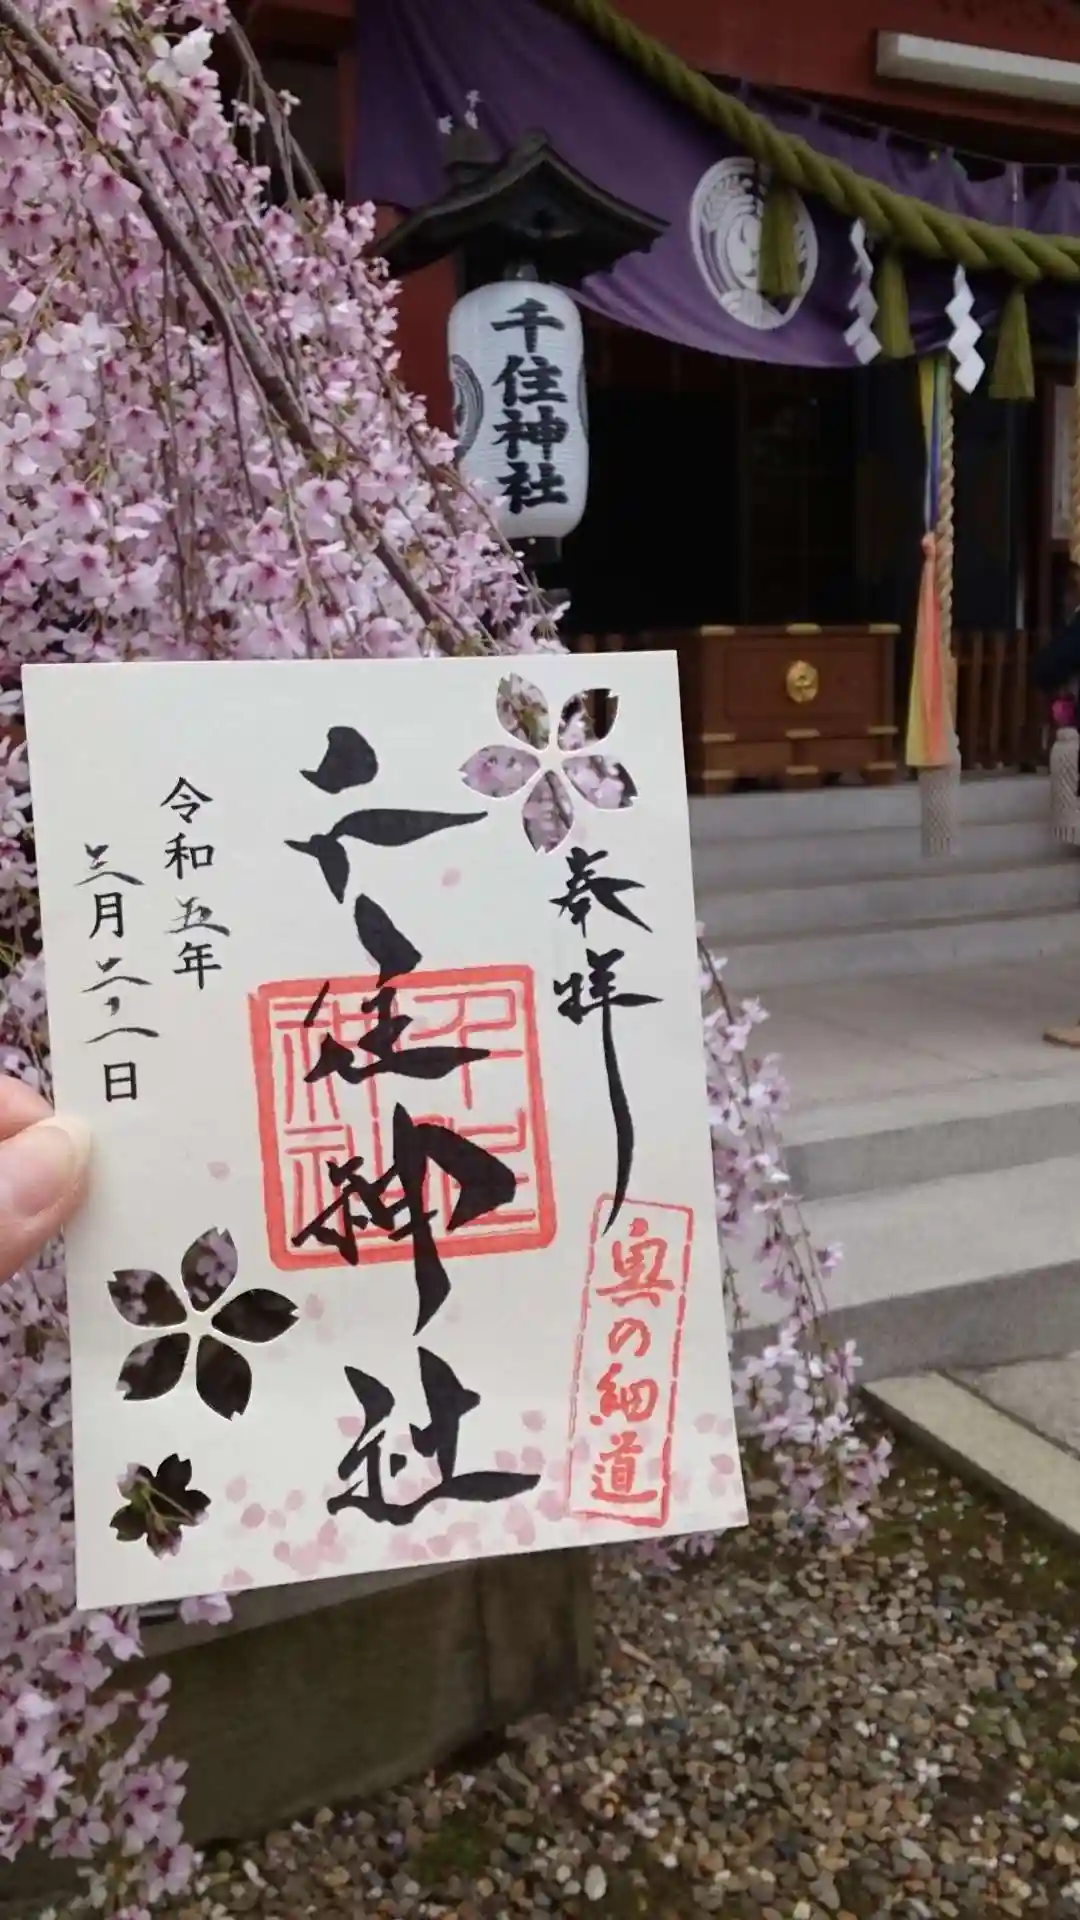 千住神社
奉拝
千住神社
千住神社
奥の細道
令和五年
三月二十八日